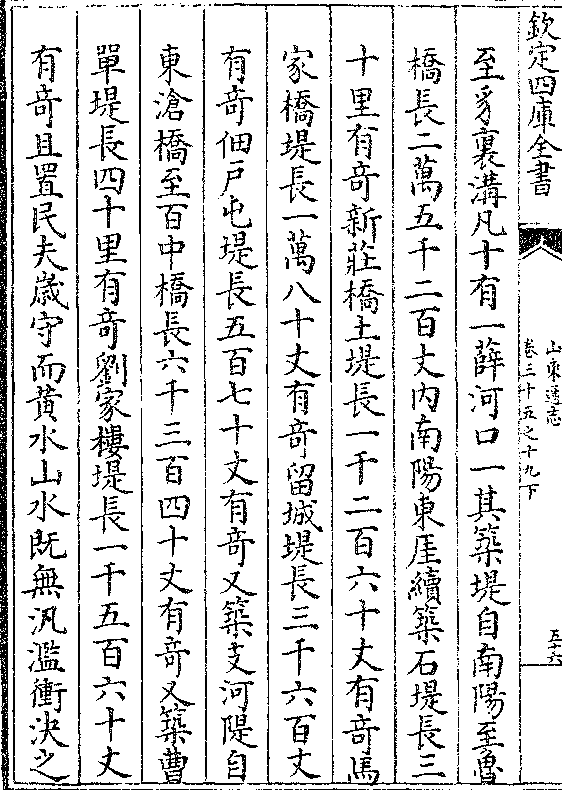 欽定四庫全書
山東通志
卷三十五之十九下
五十六
至豸裏溝凡十有一薛河口一其築堤自南陽至魯
橋長二萬五千二百丈内南陽東厓續築石堤長三
十里有奇新莊橋土堤長一千二百六十丈有奇馬
家橋堤長一萬八十丈有奇留城堤長三千六百丈
有奇佃戸屯堤長五百七十丈有奇又築支河隄自
東滄橋至百中橋長六千三百四十丈有奇又築曹
單堤長四十里有奇劉家樓堤長一千五百六十丈
有奇且置民夫嵗守而黄水山水既無汎濫衝決之